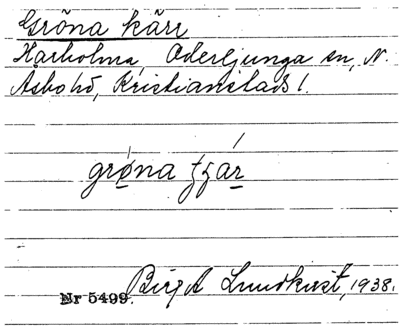 Gröna kärr
Harholma, Oderljunga sn, N.
Åsbo hd, Kristianstads l.
grǿna tʒár
Birgit Lundkvist, 1938.
Nr 5499.